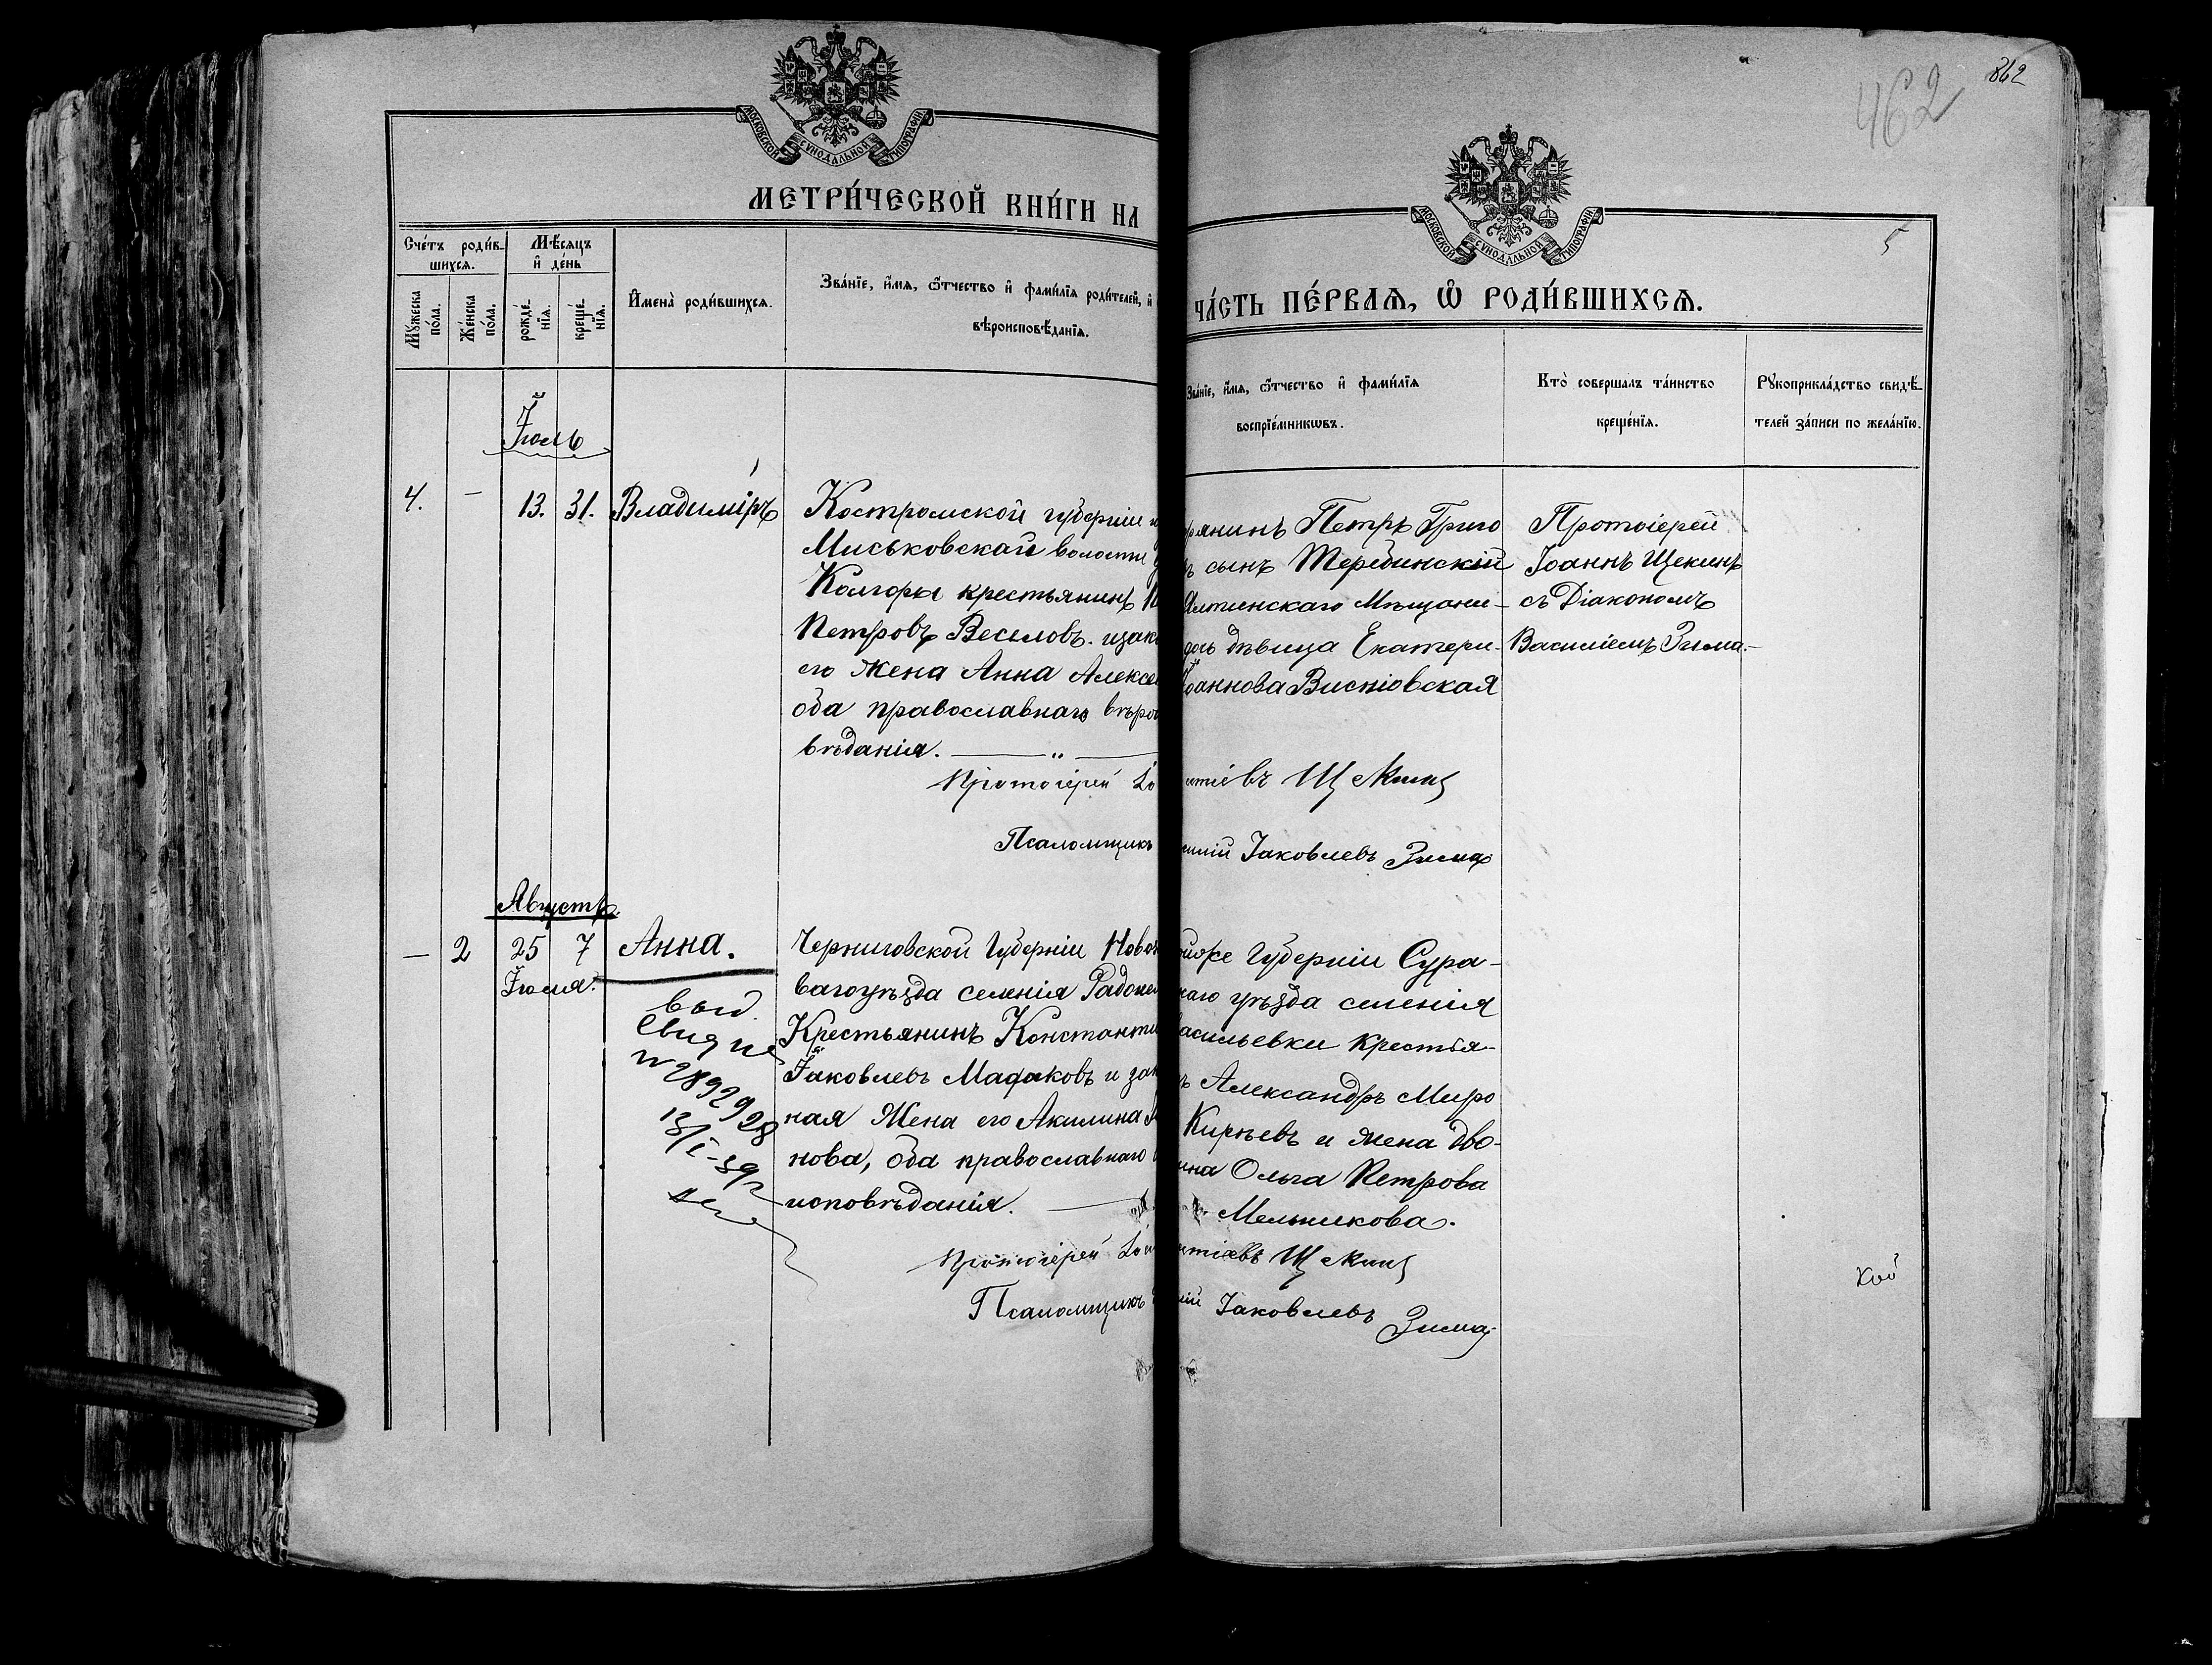 МОСКОВСКОЙ СѴНОДАЛЬНОЙ ТИПОГРАФІИ
МЕТРИ́ЧЕСКОЙ КНИ́ГИ НА
Сче́тъ роди́в-
шихсѧ.
Мѣ́сѧцъ
и҆ де́нь
Мꙋ́жеска
по́ла.
Же́нска
по́ла.
рожде́-
нїѧ.
креще́-
нїѧ.
И҆мена̀ роди́вшихсѧ.
Зва́нїе, и҆́мѧ, ѻ҆́тчество и҆ фами́лїѧ роди́телей, и҆
вѣроисповѣ́данїѧ.
Іюль
4. — 13. 31. Владиміръ
Костромской губерніи
Миськовской волости
Колгоры крестьянинъ
Петровъ Веселовъ. и зак
его жена Анна Алексе
оба православнаго вѣро
вѣданія.
Протоіерей Іо
Псаломщикъ
Августъ.
— 2 25 7 Анна.
Іюля.
выд.
Свид
№ 289298
13/I-39 г
Черниговской Губерніи Ново
ваго уѣзда селенія
Крестьянинъ Константи
Іаковлевъ и зак
ная Жена его Акилина
нова, оба православнаго
исповѣданія.
Протоіерей
Псаломщикъ
462
862
5
МОСКОВСКОЙ СѴНОДАЛЬНОЙ ТИПОГРАФІИ
ЧА́СТЬ ПЕ́РВАѦ, Ѡ҆ РОДИ́ВШИХСѦ.
Зва́нїе, и҆́мѧ, ѻ҆́тчество и҆ фами́лїѧ
воспрїе́мникѡвъ.
Кто̀ соверша́лъ та́инство
креще́нїѧ.
Рꙋкоприкла́дство свидѣ́-
телей за́писи по жела́нїю.
янинъ Петръ Григо
ъ сынъ Теребинскій
Ялтинскаго Мѣщани-
дочь дѣвица Екатери-
Іоаннова Висніовская
Протоіерей
Іоаннъ Щекинъ
съ Діакономъ
Василіемъ Зима.
нтіевъ Щекинъ
силій Іаковлевъ Зима
же Губерніи Сура-
наго уѣзда селенія
асильевки Крестья-
ъ Александръ Миро
Кирѣевъ и жена дво-
ина Ольга Петрова
Мельникова.
нтіевъ Щекинъ
лій Іаковлевъ
Зима